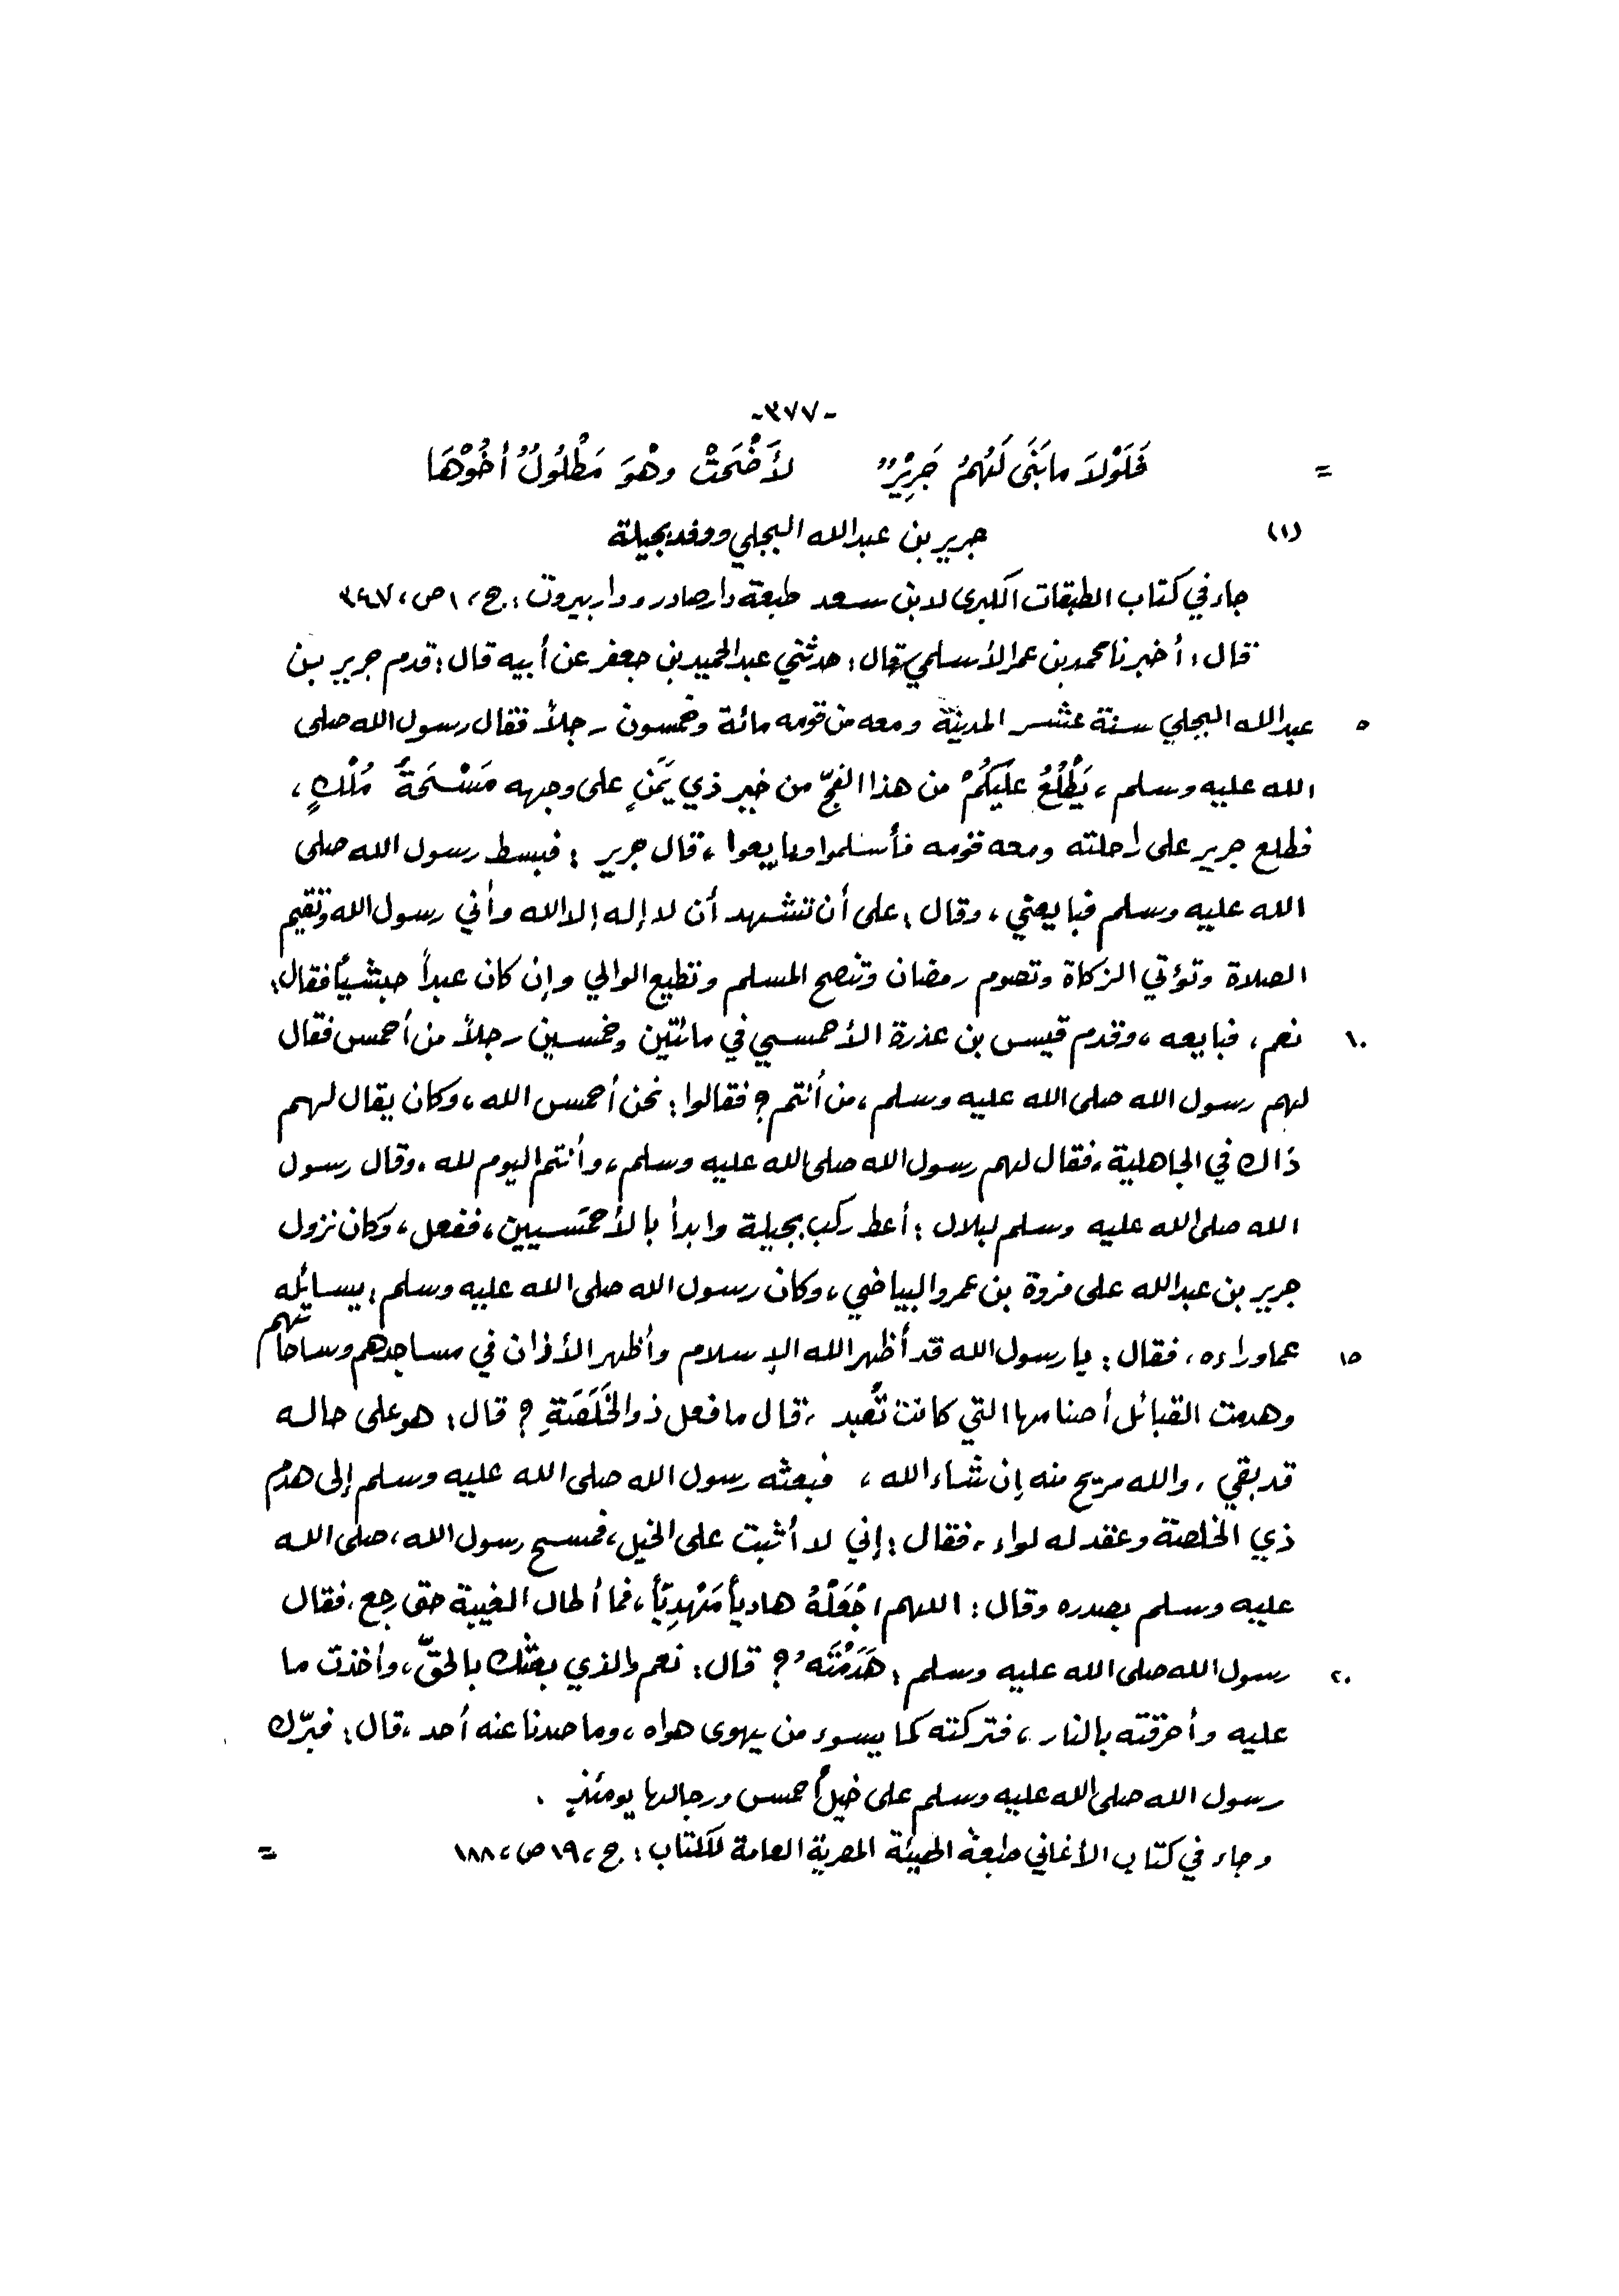 -٣٧٧-
= فَلَوْلاَ ما بَنَى لَهُمُ جَرِيْرٌ لأَضْحَتْ وهْوَ مَطْلُولٌ أخُوْهَا
(١) جرير بن عبد الله البجلي ووفد بجيلة
جاء في كتاب الطبقات الكبرى لابن سعد طبعة دار صادر ودار بيروت: ج، ١ ص، ٣٤٧
قال: أخبرنا محمد بن عمر الأسلمي قال: حدثني عبد الحميد بن جعفر عن أبيه قال: قدم جرير بن
٥ عبد الله البجلي سنة عشر المدينة ومعه من قومه مائة وخمسون رجلاً فقال رسول الله صلى
الله عليه وسلم، يَطْلُعُ عليَكُمْ من هذا الفجّ من خير ذي يَمَنٍ على وجهه مَسْحَةُ مُلْكٍ،
فطلع جرير على راحلته ومعه قومه فأسلموا وبايعوا، قال جرير: فبسط رسول الله صلى
الله عليه وسلم فبايعني، وقال: على أن تشهد أن لا إله إلا الله وأني رسول الله وتقيم
الصلاة وتؤتي الزكاة وتصوم رمضان وتنصح المسلم وتطيع الوالي وإن كان عبداً حبشيًا فقال:
١٠ نعم، فبايعه، وقدم قيس بن عذرة الأحمسي في مائتين وخمسين رجلاً من أحمس فقال
لهم رسول الله صلى الله عليه وسلم، من أنتم؟ فقالوا: نحن أحمس الله، وكان يقال لهم
ذاك في الجاهلية، فقال لهم رسول الله صلى الله عليه وسلم، وأنتم اليوم لله، وقال رسول
الله صلى الله عليه وسلم لبلال: أعط ركب بجيلة وابدأ بالأحمَسيين، ففعل، وكان نزول
جرير بن عبد الله على فروة بن عمرو البياضي، وكان رسول الله صلى الله عليه وسلم: يسائله
١٥ عما وراءه، فقال: يا رسول الله قد أظهر الله الإسلام وأظهر الأذان في مساجدهم وساحاتهم
وهدمت القبائل أصنامها التي كانت تُعبد، قال ما فعل ذو الخَلَصَةِ؟ قال: هو على حاله
قد بقي، والله مريح منه إن شاء الله، فبعثه رسول الله صلى الله عليه وسلم إلى هدم
ذي الخلصة وعقد له لواء، فقال: إني لا أثبت على الخيل، فمسح رسول الله، صلى الله
عليه وسلم بصدره وقال: اللهم اجْعَلْهُ هادياً مَهْدِيّاً، فما أطال الغيبة حتى رجع، فقال
٢٠ رسول الله صلى الله عليه وسلم: هَدَمْتَهُ؟ قال: نعم والذي بعثك بالحقّ، وأخذت ما
عليه وأحرقته بالنار، فتركته كما يسوء من يهوى هواه، وما صدنا عنه أحد، قال: فبرّك
رسول الله صلى الله عليه وسلم على خيل أحمس ورجالها يومئذٍ.
وجاء في كتاب الأغاني طبعة الهيئة المصرية العامة للكتاب: ج، ١٩ ص، ١٨٨ =